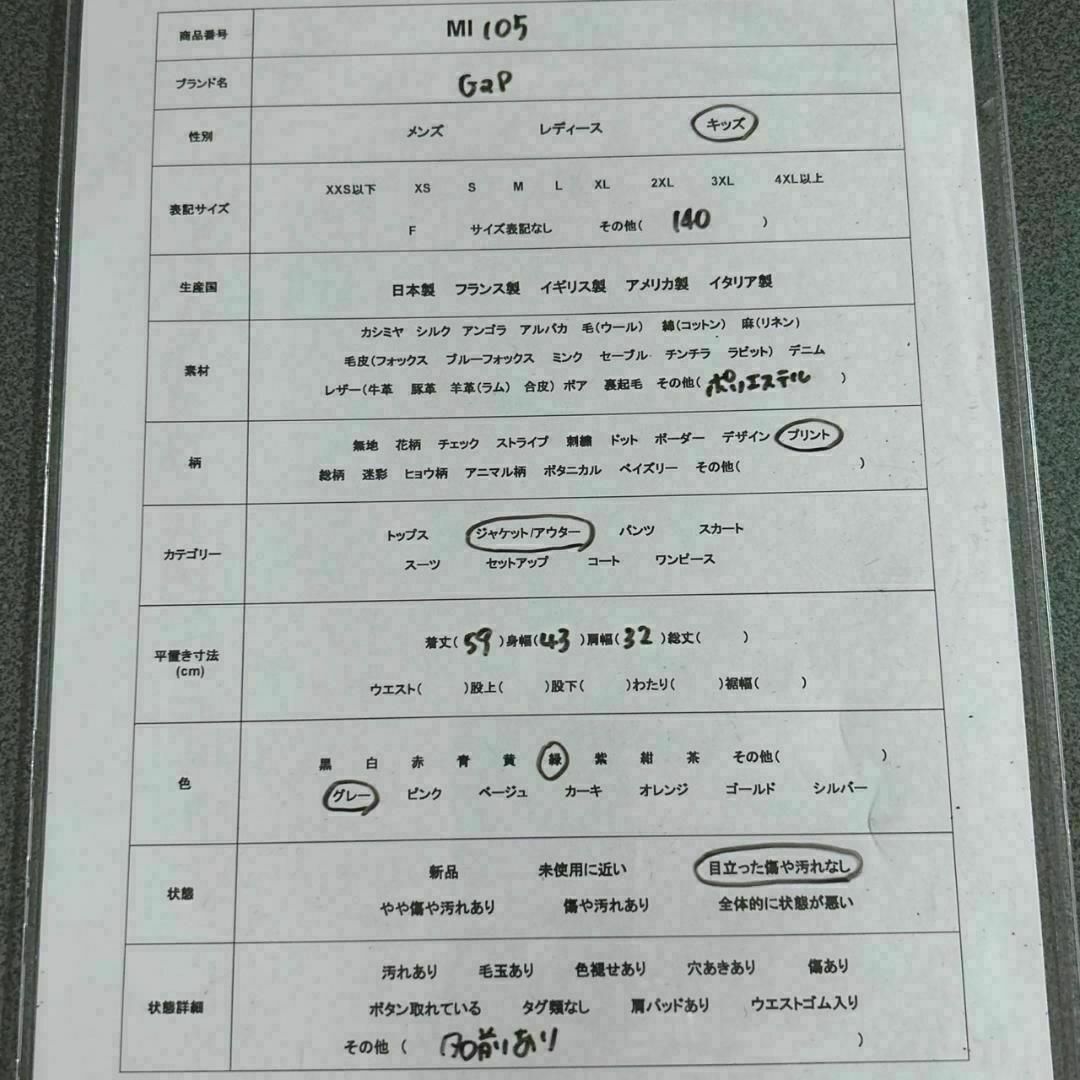 商品番号 MI 105
ブランド名 GaP
性別 メンズ レディース キッズ
表記サイズ XXS以下 XS S M L XL 2XL 3XL 4XL以上
F サイズ表記なし その他( 140 )
生産国 日本製 フランス製 イギリス製 アメリカ製 イタリア製
素材 カシミヤ シルク アンゴラ アルパカ 毛(ウール) 綿(コットン) 麻(リネン)
毛皮(フォックス ブルーフォックス ミンク セーブル チンチラ ラビット) デニム
レザー(牛革 豚革 羊革(ラム) 合皮) ボア 裏起毛 その他( ポリエステル )
柄 無地 花柄 チェック ストライプ 刺繍 ドット ボーダー デザイン プリント
総柄 迷彩 ヒョウ柄 アニマル柄 ボタニカル ペイズリー その他( )
カテゴリー トップス ジャケット/アウター パンツ スカート
スーツ セットアップ コート ワンピース
平置き寸法 (cm) 着丈( 59 )身幅( 43 )肩幅( 32 )総丈( )
ウエスト( )股上( )股下( )わたり( )裾幅( )
色 黒 白 赤 青 黄 緑 紫 紺 茶 その他( )
グレー ピンク ベージュ カーキ オレンジ ゴールド シルバー
状態 新品 未使用に近い 目立った傷や汚れなし
やや傷や汚れあり 傷や汚れあり 全体的に状態が悪い
状態詳細 汚れあり 毛玉あり 色褪せあり 穴あきあり 傷あり
ボタン取れている タグ類なし 肩パッドあり ウエストゴム入り
その他 ( あり )